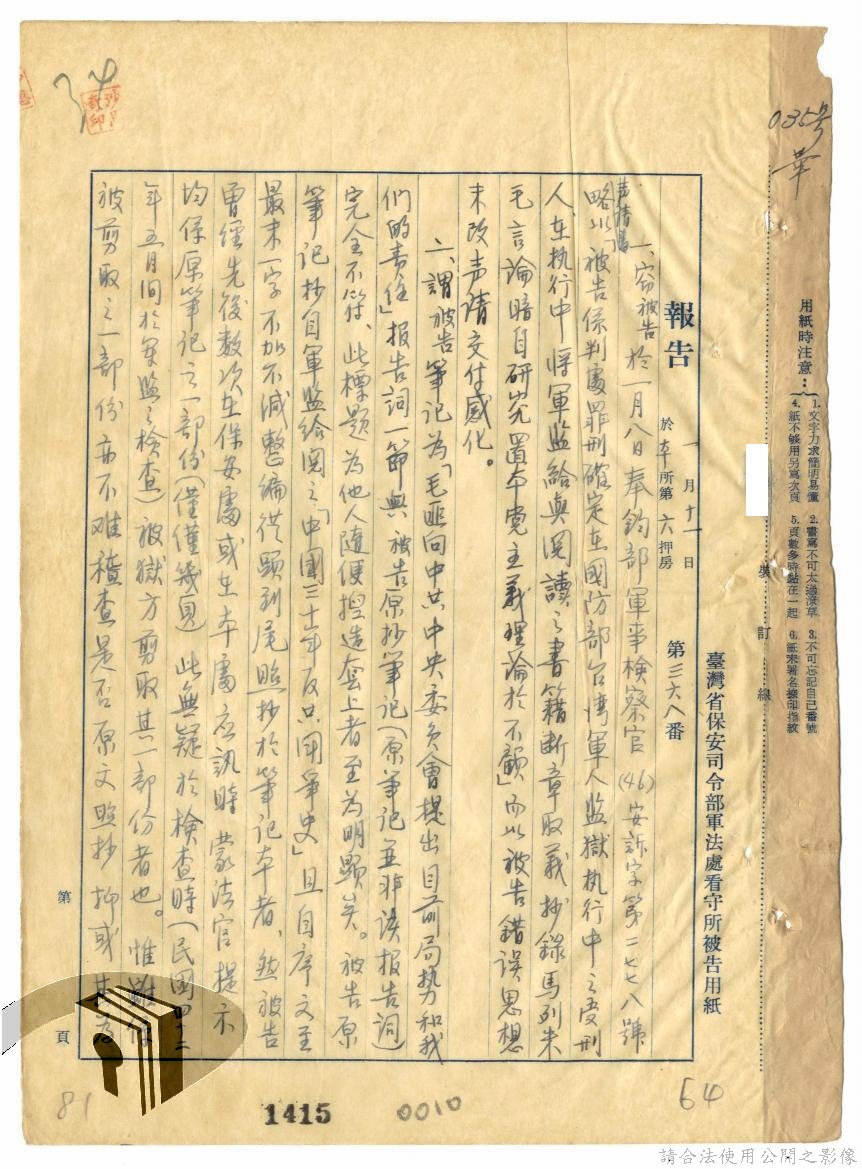 035号
華
用紙時注意：
1.文字力求簡明易懂　2.書寫不可太過潦草　3.不可忘記自己番號
4.紙不够用另寫次頁　5.頁數多時黏在一起　6.紙末署名蓋印指紋
裝訂線
臺灣省保安司令部軍法處看守所被告用紙
報告　一月十一日於本所第六押房　第三六八番
一、窃被告於一月八日奉鈞部軍事檢察官(46)安訴字第二七七八號
声請書
略以「被告係判處罪刑確定在國防部台湾軍人監獄執行中之受刑
人、在執行中將軍監給與閱讀之書籍断章取義抄錄馬列朱
毛言論暗自研究置本党主義理論於不顧」而以被告錯誤思想
未改声請交付感化。
二、謂被告筆記為「毛匪向中共中央委員會提出目前局勢和我
們的責任」报告詞一節與被告原抄筆記(原筆記並非该报告詞)
完全不符、此標题為他人隨便揑造套上者至為明顯矣。被告原
筆記抄自軍監給閱之「中國三十年反共鬥爭史」且自序文至
最末一字不加不減整编従頭到尾照抄於筆記本者、然被告
曾經先後数次在保安處或在本處应訊時蒙法官提示
均係原筆记之一部份(僅僅幾頁)此無疑於檢查時(民國四十二
年五月间於軍監之檢查)被獄方剪取其一部份者也。惟雖係
被剪取之一部份亦不难稽查是否原文照抄抑或其為
第　頁
81
1415
0010
64
請合法使用公開之影像